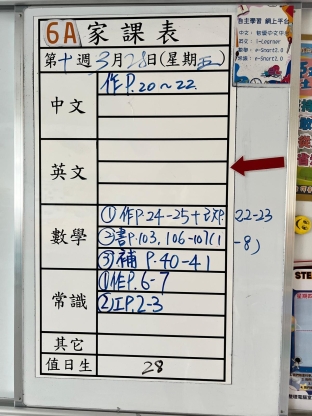 6A家課表
第十週3月28日(星期五)
中文
作P.20~22
英文
數學
①作P.24-25+改P.22-23
②書P.103,106-107(1-8)
③補 P.40-41
常識
①作P.6-7
②工P.2-3
其它
值日生
28
自主學習 網上平台
英文：i-Learner
數學：e-Smart2.0
常識：e-Smart2.0